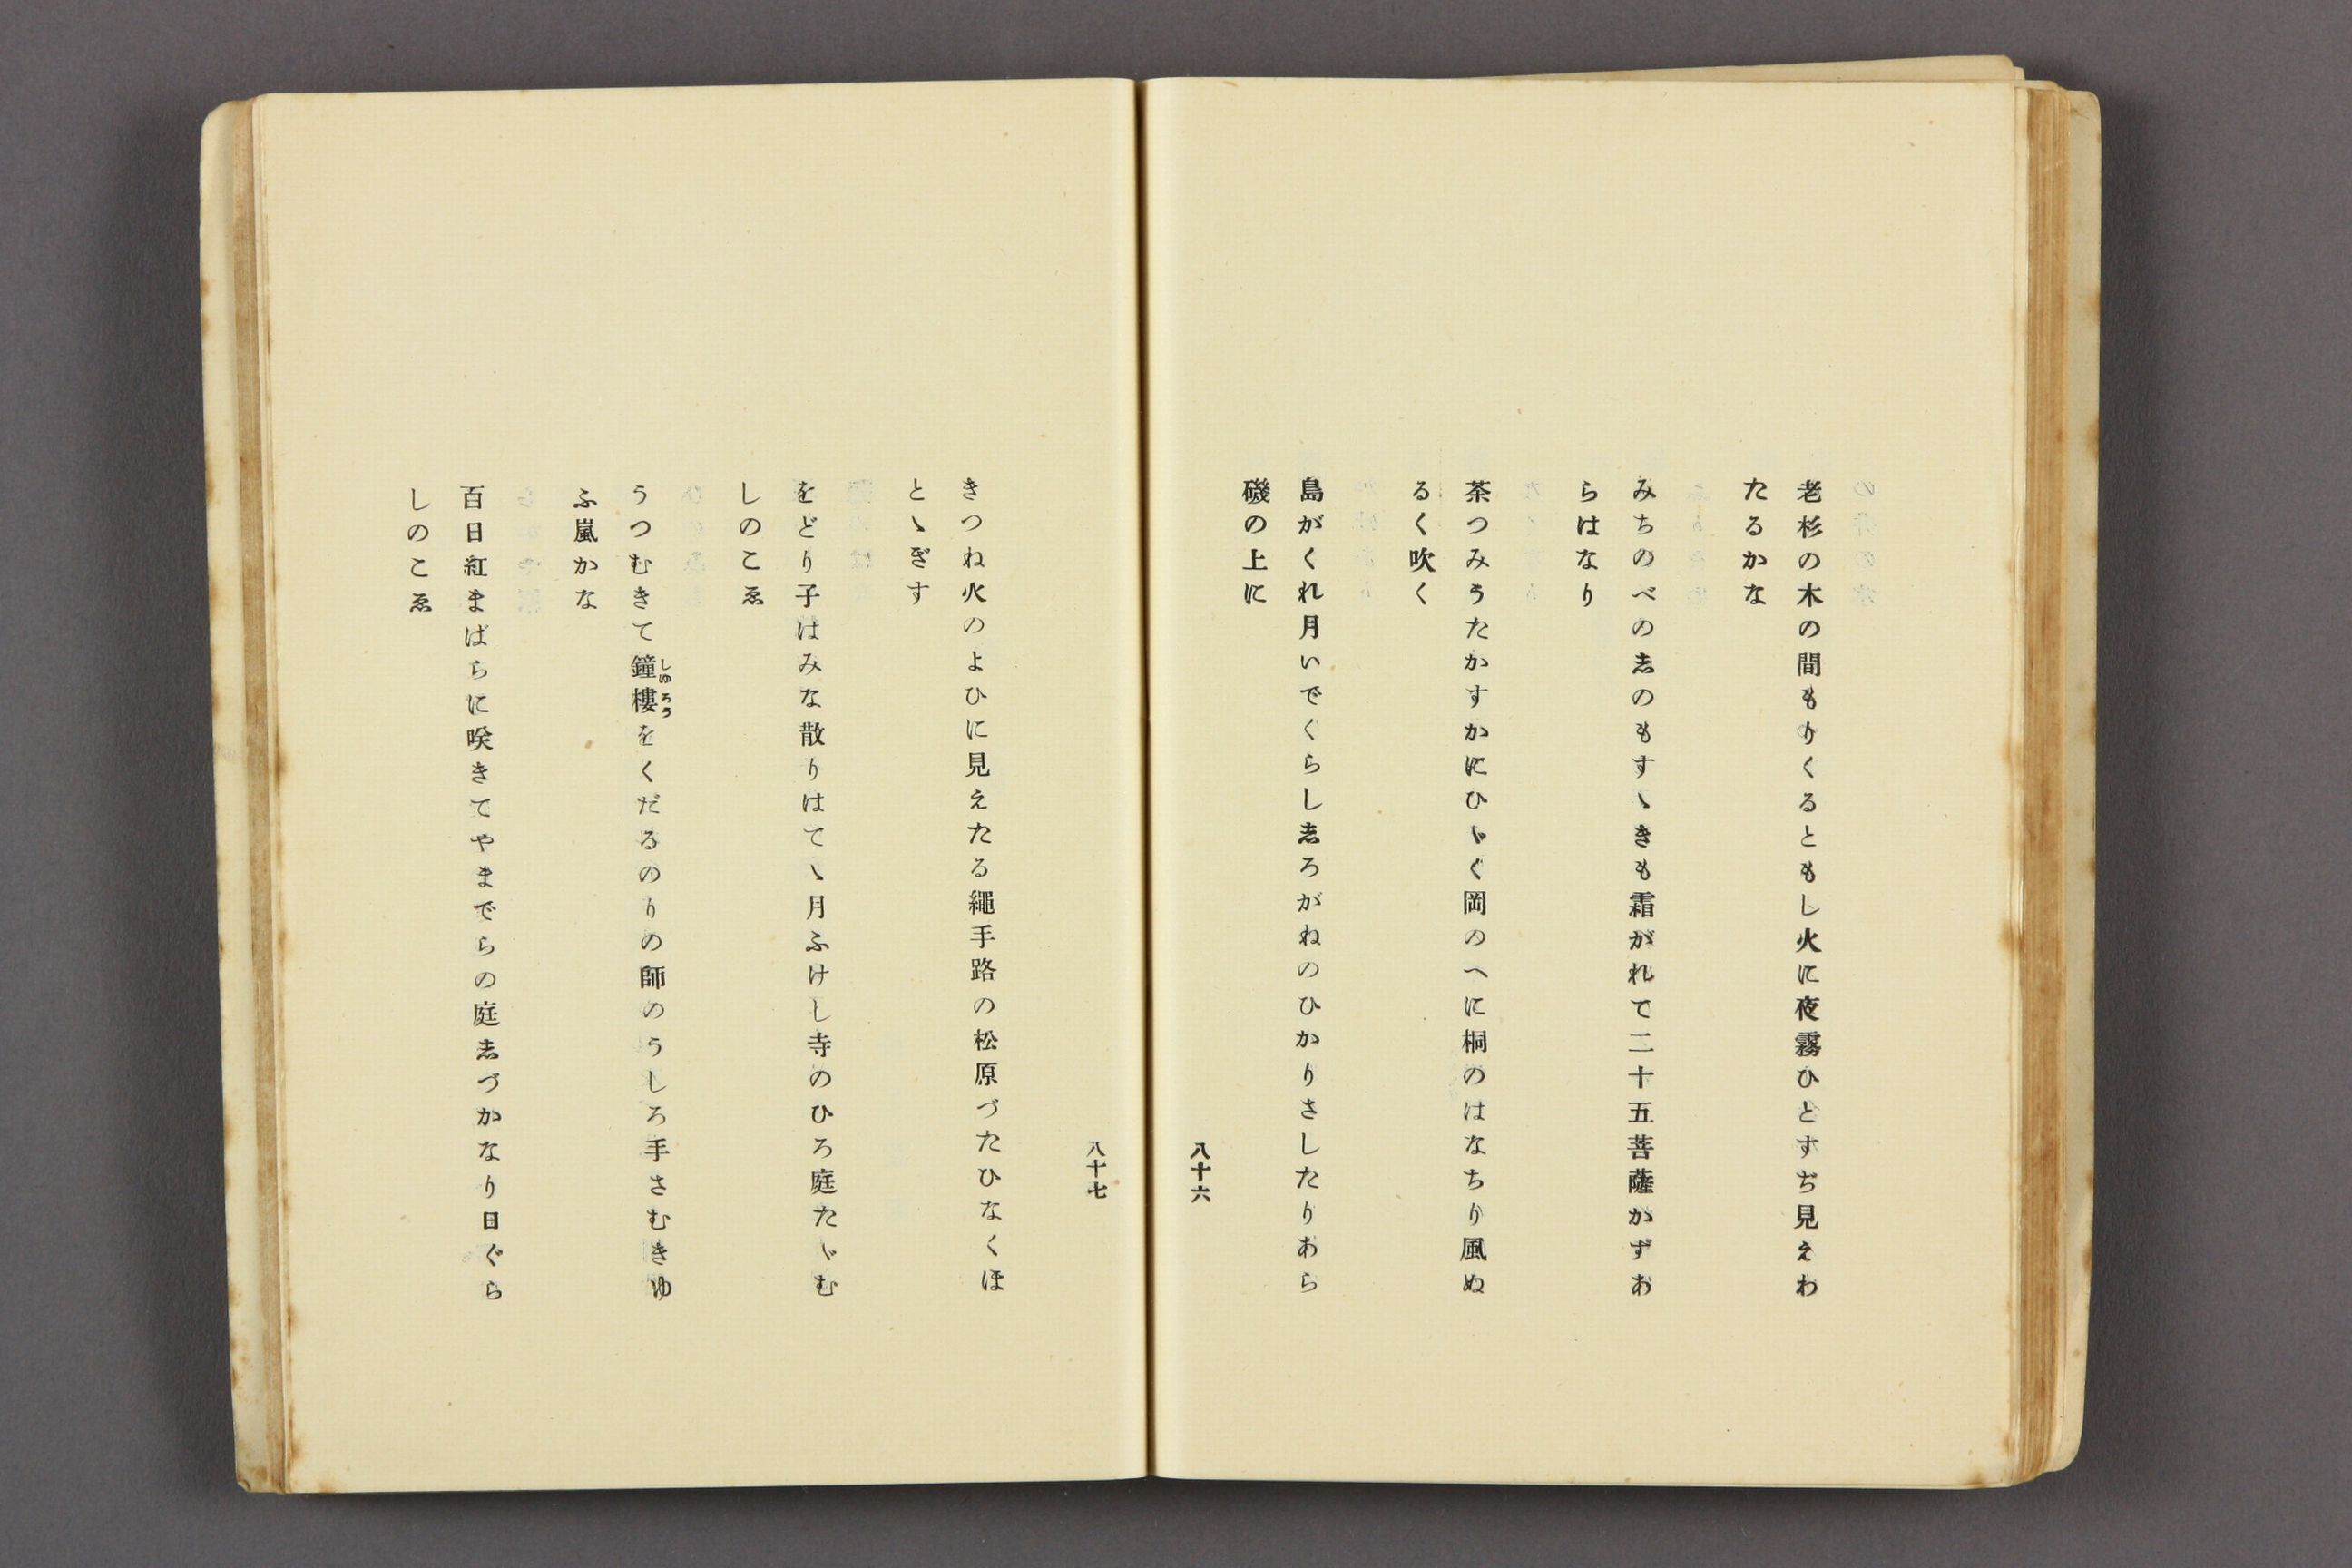 老杉の木の間もりくるともし火に夜霧ひとすぢ見えわ
たるかな
みちのべの志のもすゝきも霜がれて二十五菩薩かずあ
らはなり
茶つみうたかすかにひゞく岡のへに桐のはなちり風ぬ
るく吹く
島がくれ月いでくらし志ろがねのひかりさしたりあら
磯の上に
八十六
八十七
きつね火のよひに見えたる繩手路の松原づたひなくほ
とゝぎす
をどり子はみな散りはてゝ月ふけし寺のひろ庭たゞむ
しのこゑ
うつむきて鐘樓しゆろうをくだるのりの師のうしろ手さむきゆ
ふ嵐かな
百日紅まばらに咲きてやまでらの庭志づかなり日ぐら
しのこゑ